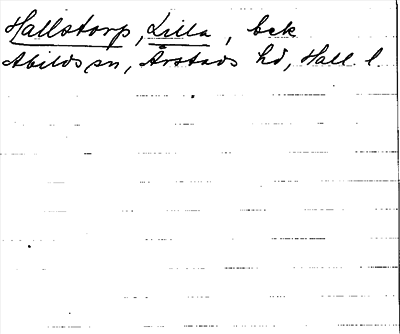 Hallstorp, Lilla, bek
Abilds sn, Årstads hd, Hall. l.